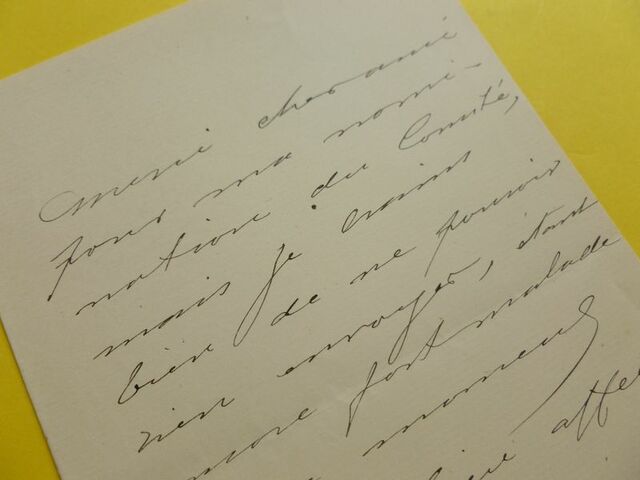 Merci cher ami
pour ma nomi-
nation du Comité,
mais je crains
bien de ne pouvoir
rien envoyer, étant
encore fort malade
moment